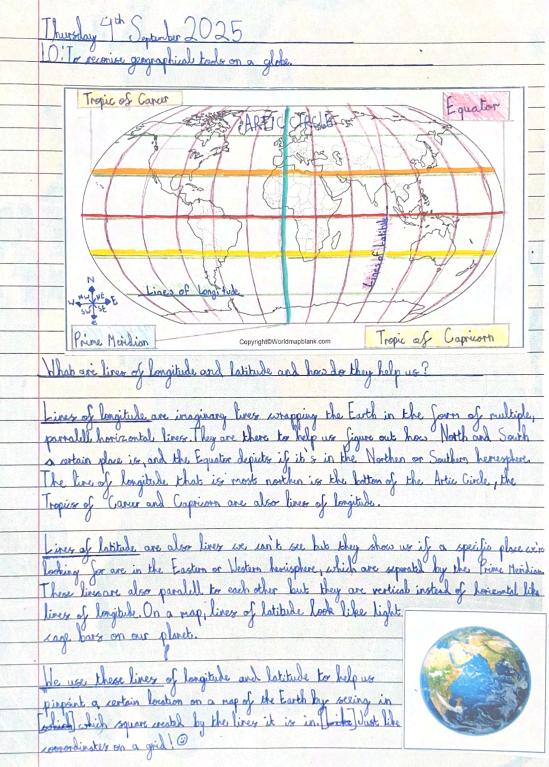 Thursday 4th September 2025
LO: To reconise geographical tools on a globe.
Tropic of Cancer
Equator
ARTIC CIRCLE
Lines of latitude
Lines of Longitude
N
NW NE
W E
SW SE
S
Prime Meridion
Copyright©Worldmapblank.com
Tropic of Capricorn
What are lines of longitude and latitude and how do they help us?
Lines of longitude are imaginary lines wrapping the Earth in the form of multiple,
parralell horizontal lines. They are there to help us figure out how North and South
a certain place is, and the Equator depicts if it's in the Northen or Southern hemesphere.
The line of longitude that is most northen is the bottom of the Artic Circle, the
Tropics of Cancer and Capricorn are also lines of longitude.
Lines of latitude are also lines we can't see but they show us if a specific place we're
looking for are in the Eastern or Western hemisphere, which are separated by the Prime Meridian.
These lines are also paralell to each other but they are vertical instead of horizontal like
lines of longitude. On a map, lines of latitude look like light
cage bars on our planet.
We use these lines of longitude and latitude to help us
pinpoint a certain location on a map of the Earth by seeing in
which square created by the lines it is in. Just like
cooordinates on a grid!